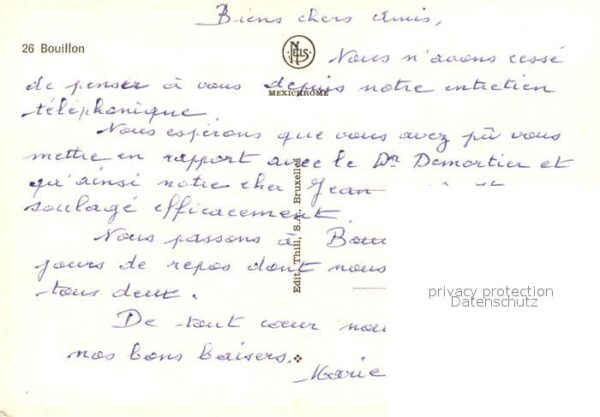 Biens chers Amis,
26 Bouillon
NELS
MEXICHROME
Nous n'avons cessé
de penser à vous depuis notre entretien
téléphonique
Nous espérons que vous avez pû vous
mettre en rapport avec le Dr Demortier et
qu'ainsi notre cher Jean
soulagé efficacement.
Nous passons à
jours de repos dont nous
tous deux.
De tout cœur nou
nos bons baisers.
Marie
Edit. Thill, S.A. Bruxelles
privacy protection
Datenschutz